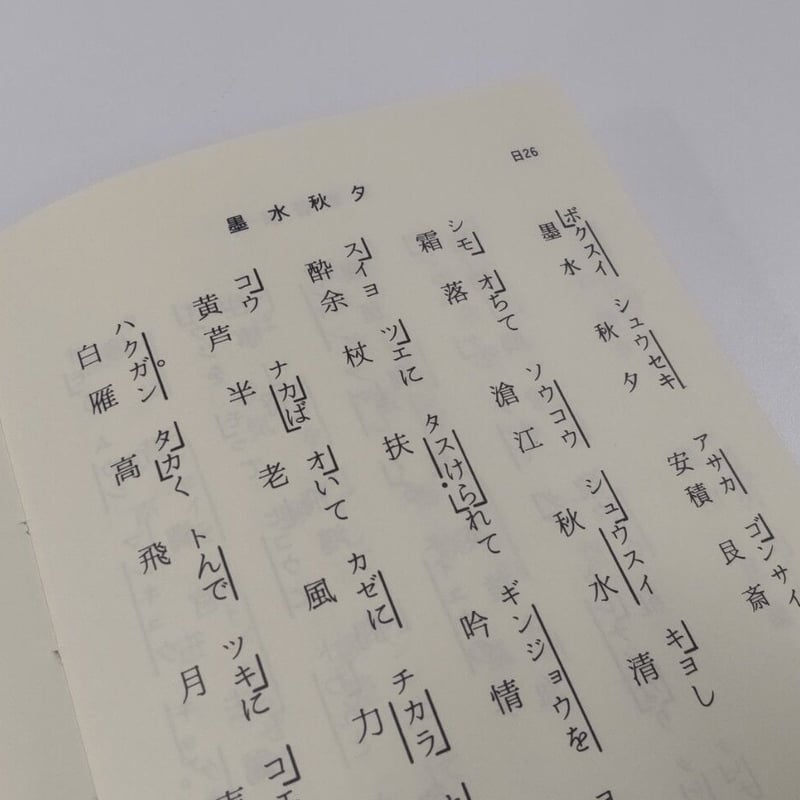 日26
墨水秋夕
ボクスイ シュウセキ アサカ ゴンサイ
墨水 秋夕 安積 艮斎
シモ オちて ソウコウ シュウスイ キヨし
霜 落 滄江 秋水 清
スイヨ ツエに タスけられて ギンジョウを
酔余 杖 扶 吟情
コウ ナカば オいて カゼに チカラ
黄芦 半 老 風 力
ハクガン タカく トんで ツキに コ
白雁 高 飛 月